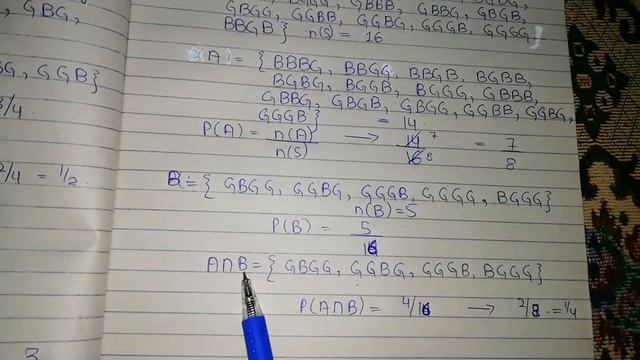 GBG,
GBGG, GGBB, GGBG, GGGB, GGGG
BBGB } n(S) = 16
(A) = { BBBG, BBGG, BBGB, BGBB,
BGBG, BGGB, BGGG, GBBB,
GG, GGB}
GBBG, GBGB, GBGG, GGBB, GGBG,
GGGB } = 14
3/4
P(A) = n(A)/n(S) → 14/16 7/8 = 7/8
2/4 = 1/2.
B = { GBGG, GGBG, GGGB, GGGG, BGGG}
n(B)=5
P(B) = 5/16
A∩B = { GBGG, GGBG, GGGB, BGGG}
P(A∩B) = 4/16 → 2/8 = 1/4